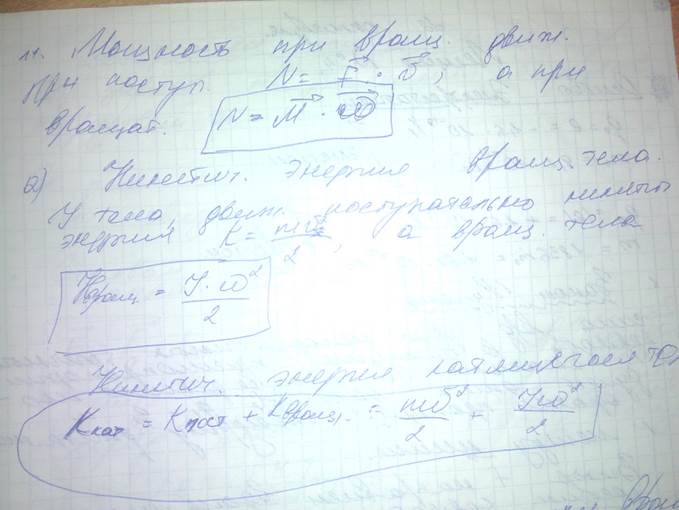 11. Мощность при вращ. движ.
При поступ. N = F⃗ · v⃗, а при
вращат. N = M⃗ · ω⃗
2) Кинетич. энергия вращ. тела.
У тела, движ. поступательно
энергия K = mv²/2, а вращ. тела
Kвращ = J · ω²/2
Кинетич. энергия катящегося
Kкат = Kпост + Kвращ. = mv²/2 + Jω²/2